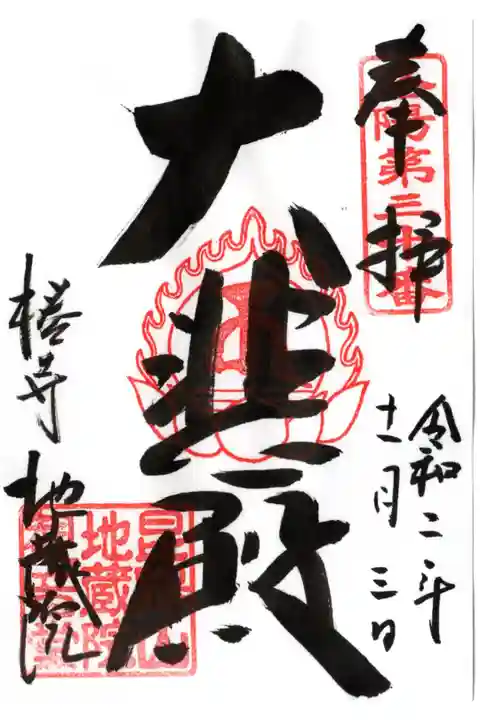 奉拝
洛陽第三十番
令和二年
十一月三日
大悲殿
椿寺
地蔵院
地蔵院